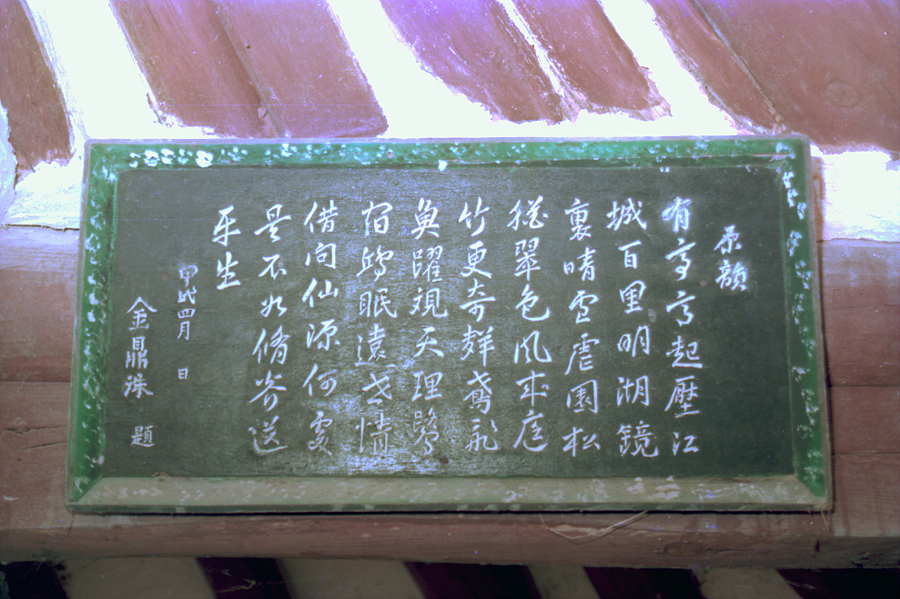 原韻
有亭亭起壓江
城百里明湖鏡
裏晴雪虐園松
猶翠色風來庭
竹更奇群鳶飛
魚躍視天理鷺
宿鷗眠遠世情
借問仙源何處
是不如脩劵送
平生
甲戌四月 日
金鼎洙 題